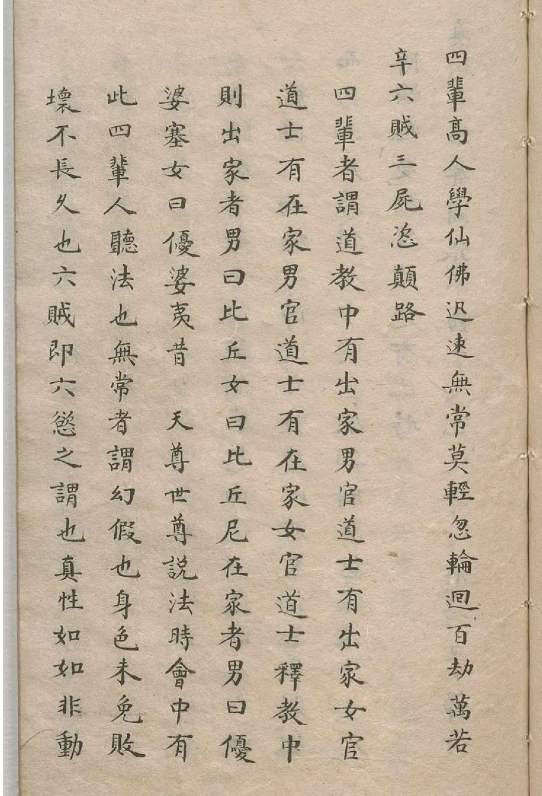 四輩高人學仙佛迟速無常莫輕忽輪迴百劫萬若
辛六賊三屍恣顛路
四輩者謂道教中有出家男官道士有出家女官
道士有在家男官道士有在家女官道士釋教中
則出家者男曰比丘女曰比丘尼在家者男曰優
婆塞女曰優婆夷昔　天尊世尊説法時會中有
此四輩人聽法也無常者謂幻假也身色未免敗
壞不長久也六賊即六慾之謂也真性如如非動